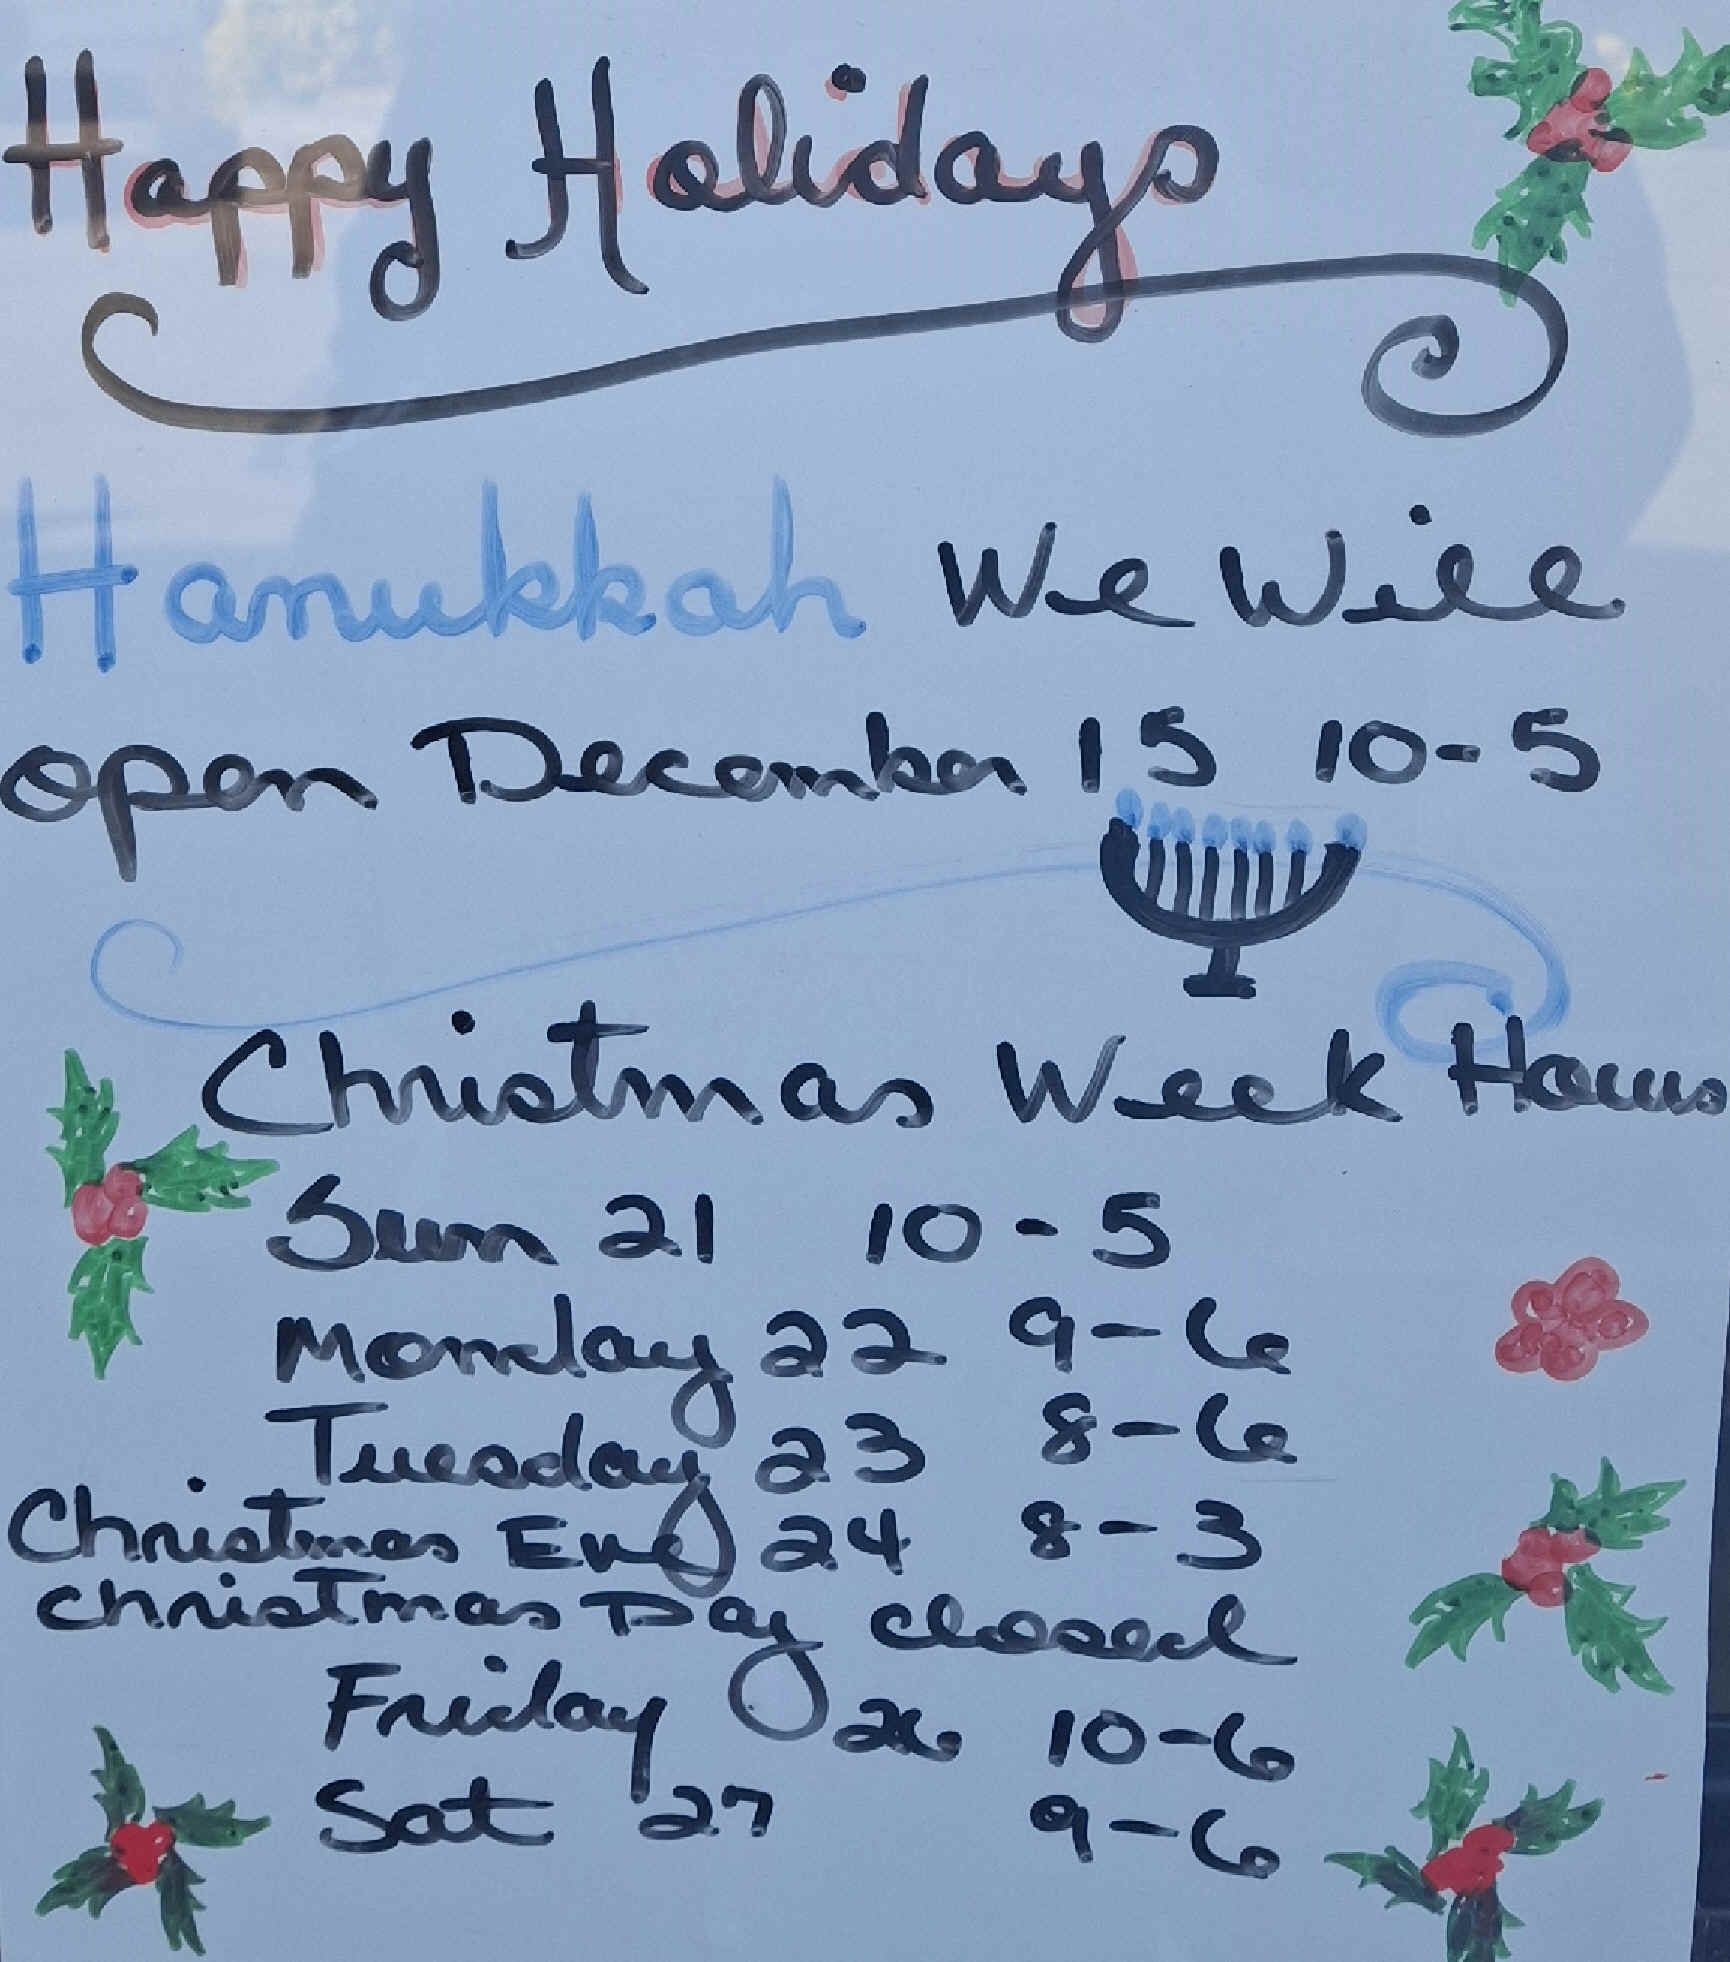 Happy Holidays
Hanukkah We Will
open December 15 10-5
Christmas Week Hours
Sun 21 10-5
Monday 22 9-6
Tuesday 23 8-6
Christmas Eve 24 8-3
Christmas Day closed
Friday 26 10-6
Sat 27 9-6